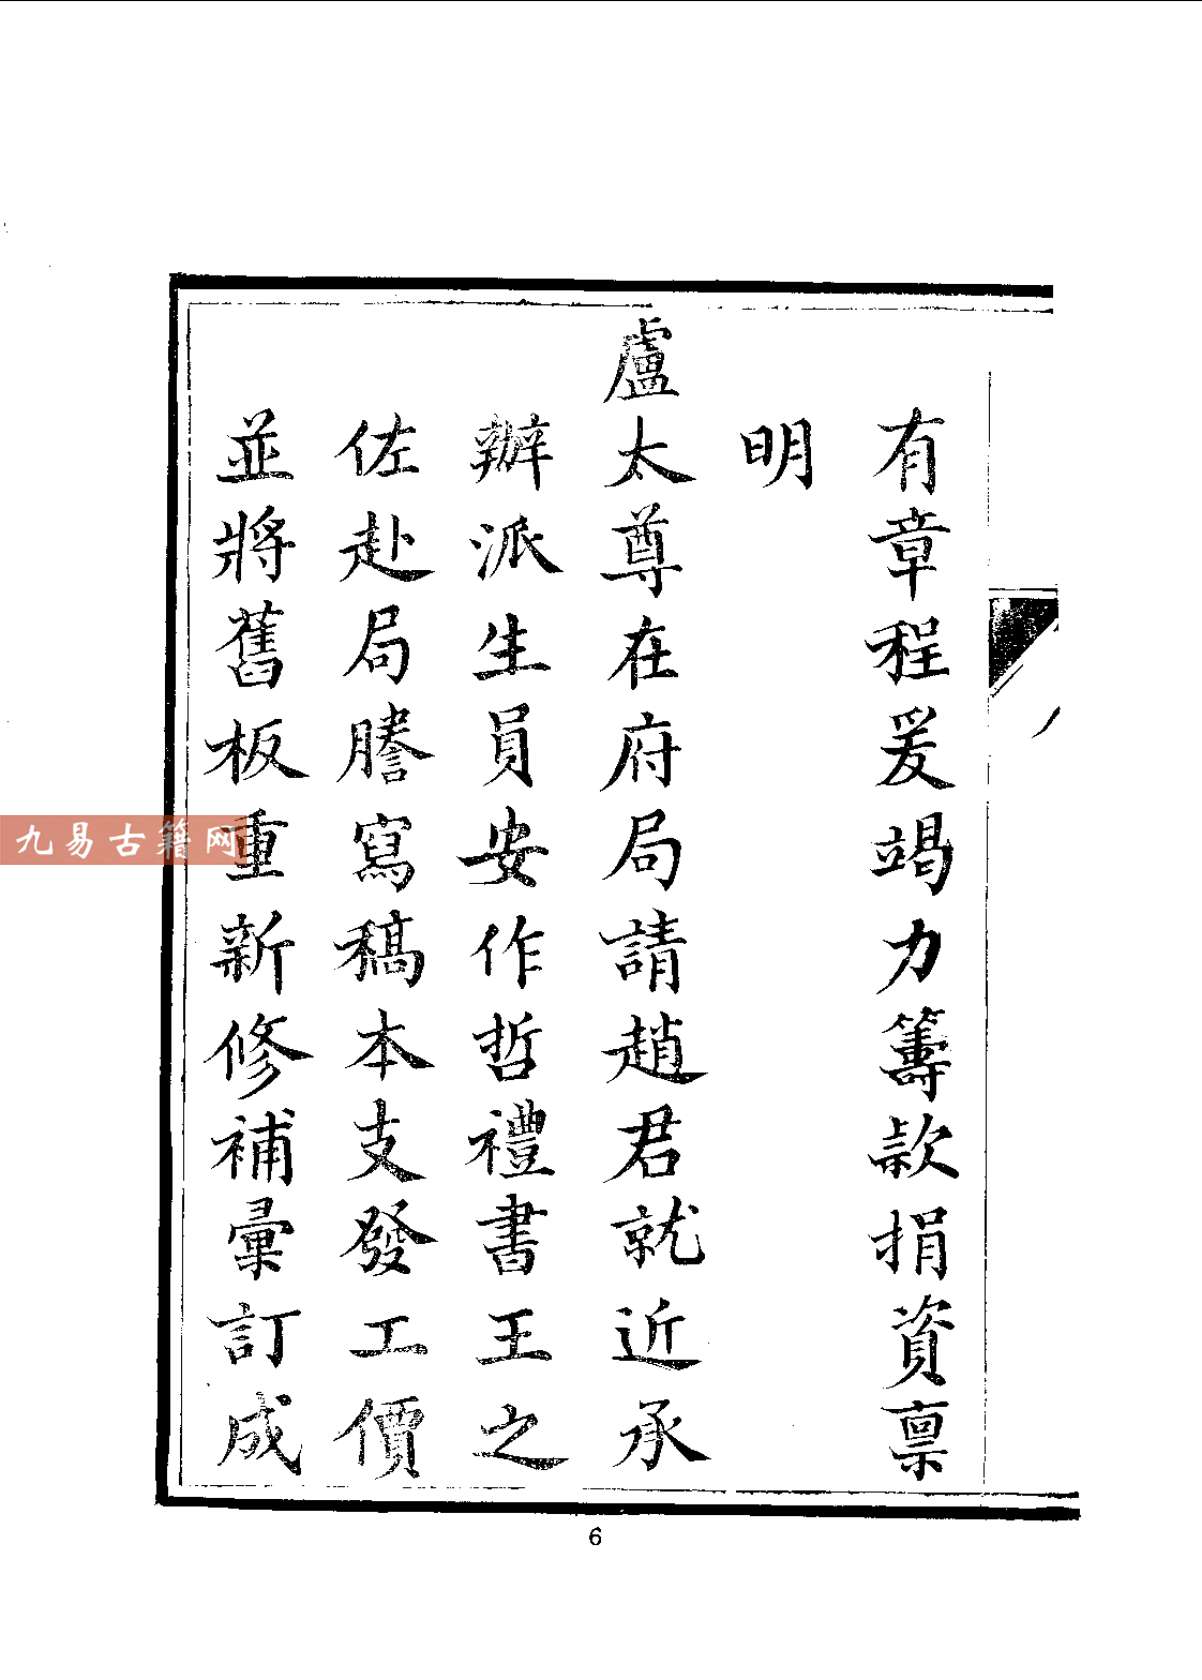 有章程爰竭力籌款捐資禀
明
盧太尊在府局請趙君就近承
辦派生員安作哲禮書王之
佐赴局謄寫稿本支發工價
並將舊板重新修補彙訂成
九易古籍网
6